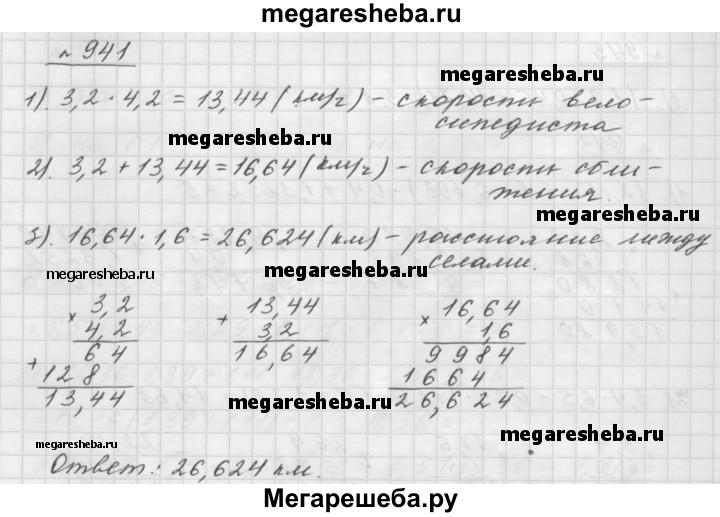 megaresheba.ru
№ 941
megaresheba.ru
1). 3,2 · 4,2 = 13,44 (км/г) - скорость вело-
сипедиста
megaresheba.ru
2). 3,2 + 13,44 = 16,64 (км/г) - скорость сбли-
жения.
megaresheba.ru
3). 16,64 · 1,6 = 26,624 (км) - расстояние между
селами.
megaresheba.ru
× 3,2
4,2
+ 64
128
13,44
+ 13,44
3,2
16,64
× 16,64
1,6
9984
1664
26,624
megaresheba.ru
megaresheba.ru
megaresheba.ru
Ответ: 26,624 км.
Мегарешеба.ру